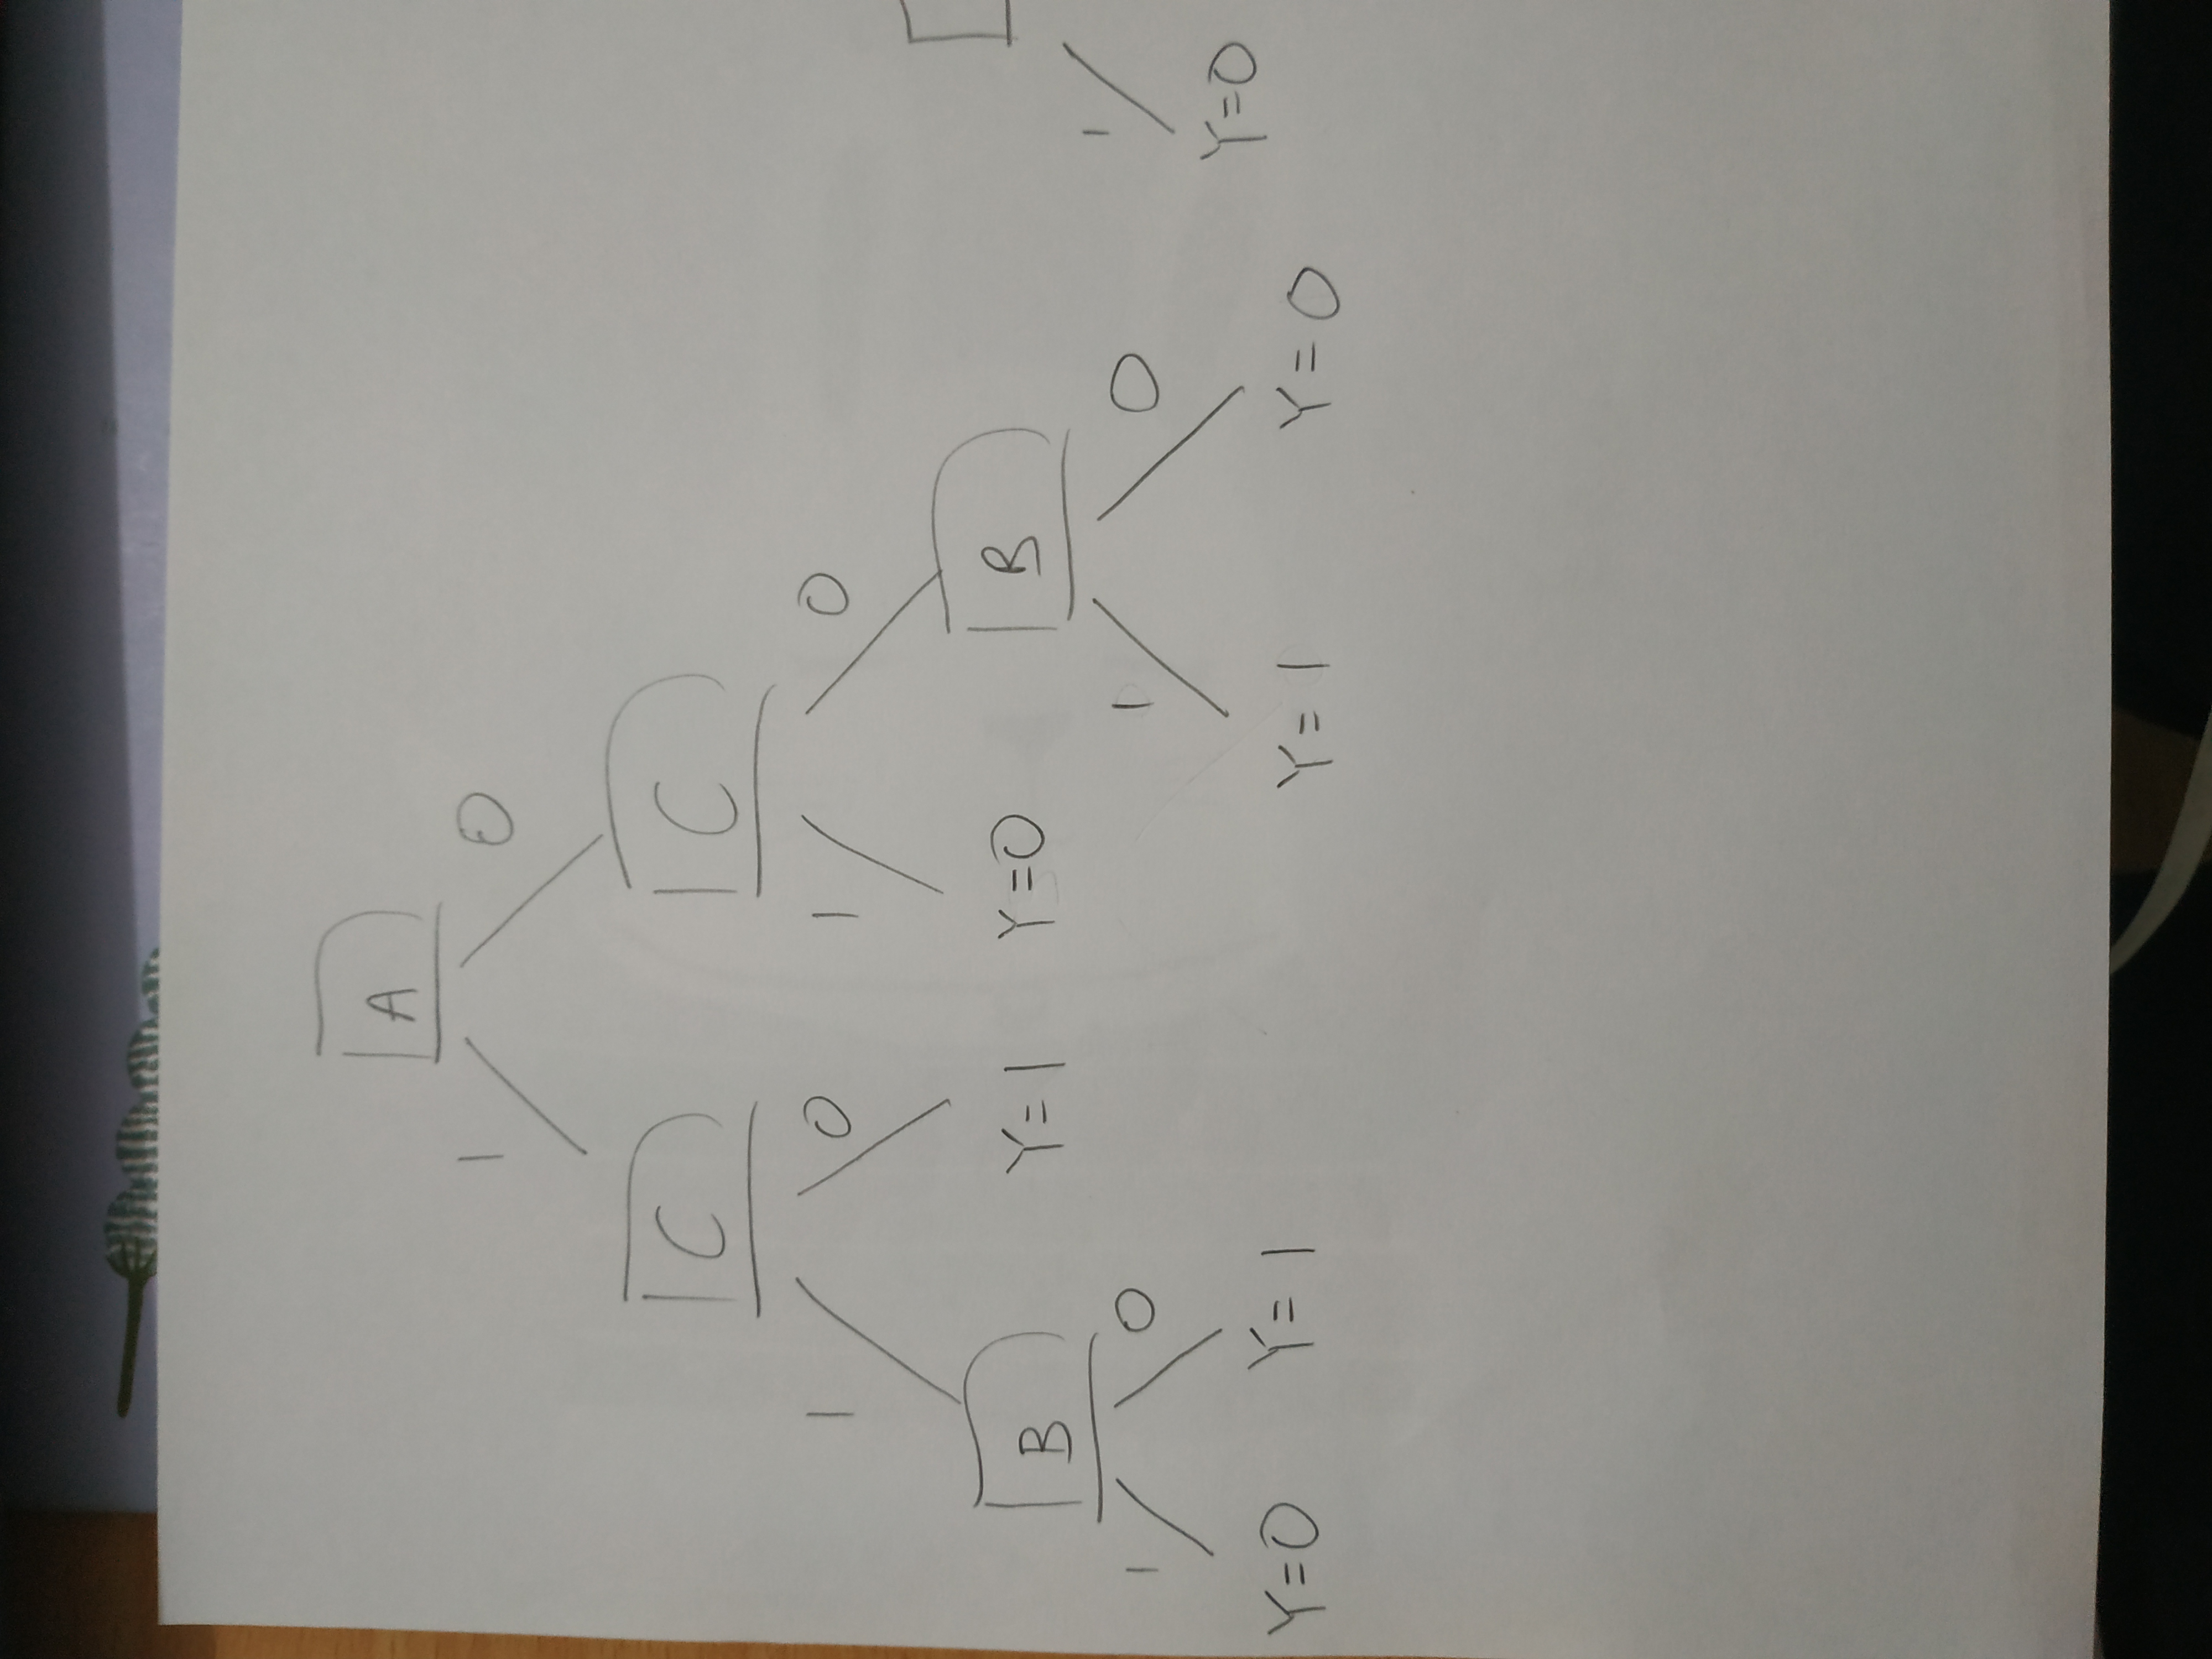 A
1 0
C C
1 0 1 0
B Y=1 Y=0 B
1 0 1 0 1
Y=0 Y=1 Y=1 Y=0 Y=0